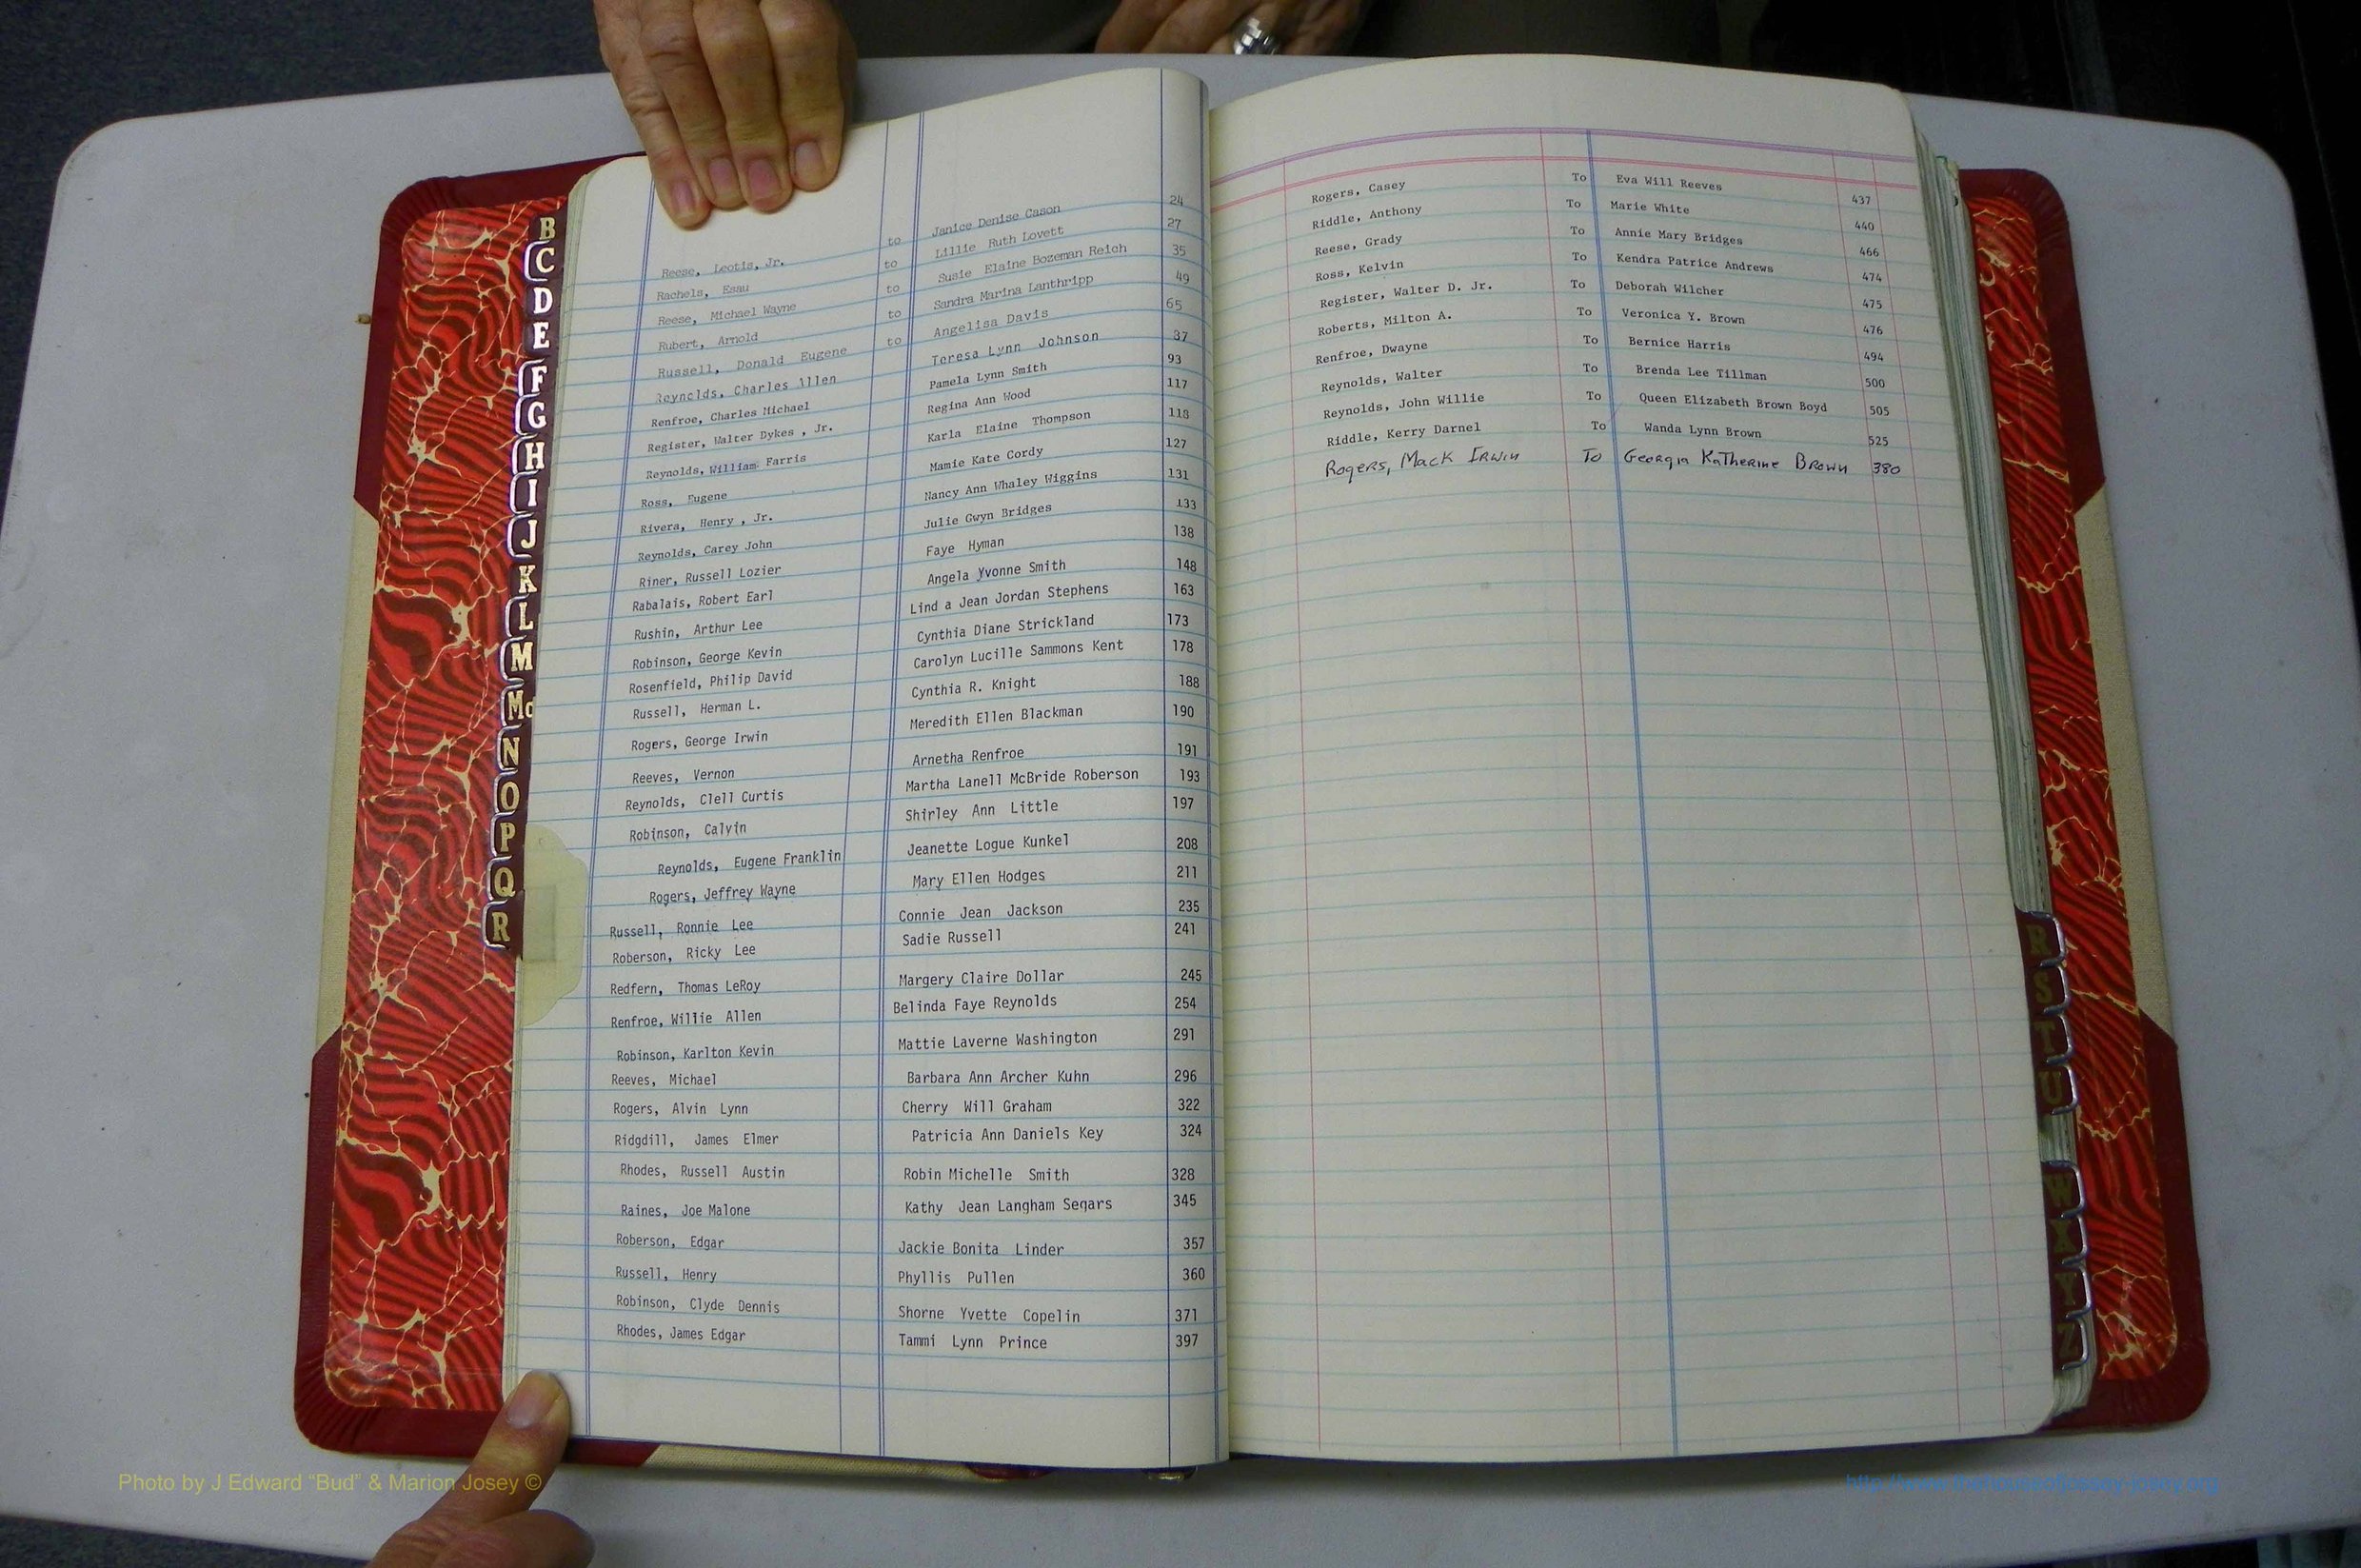 B
C
D
E
F
G
H
I
J
K
L
M
Mc
N
O
P
Q
R
Reese, Leotis, Jr. to Janice Denise Cason 24
Rachels, Esau to Lillie Ruth Lovett 27
Reese, Michael Wayne to Susie Elaine Bozeman Reich 35
Rubert, Arnold to Sandra Marina Lanthripp 49
Russell, Donald Eugene to Angelisa Davis 65
Reynolds, Charles Allen Teresa Lynn Johnson 87
Renfroe, Charles Michael Pamela Lynn Smith 93
Register, Walter Dykes , Jr. Regina Ann Wood 117
Reynolds, William Farris Karla Elaine Thompson 118
Ross, Eugene Mamie Kate Cordy 127
Rivera, Henry , Jr. Nancy Ann Whaley Wiggins 131
Reynolds, Carey John Julie Gwyn Bridges 133
Riner, Russell Lozier Faye Hyman 138
Rabalais, Robert Earl Angela Yvonne Smith 148
Rushin, Arthur Lee Lind a Jean Jordan Stephens 163
Robinson, George Kevin Cynthia Diane Strickland 173
Rosenfield, Philip David Carolyn Lucille Sammons Kent 178
Russell, Herman L. Cynthia R. Knight 188
Rogers, George Irwin Meredith Ellen Blackman 190
Reeves, Vernon Arnetha Renfroe 191
Reynolds, Clell Curtis Martha Lanell McBride Roberson 193
Robinson, Calvin Shirley Ann Little 197
Reynolds, Eugene Franklin Jeanette Logue Kunkel 208
Rogers, Jeffrey Wayne Mary Ellen Hodges 211
Russell, Ronnie Lee Connie Jean Jackson 235
Roberson, Ricky Lee Sadie Russell 241
Redfern, Thomas LeRoy Margery Claire Dollar 245
Renfroe, Willie Allen Belinda Faye Reynolds 254
Robinson, Karlton Kevin Mattie Laverne Washington 291
Reeves, Michael Barbara Ann Archer Kuhn 296
Rogers, Alvin Lynn Cherry Will Graham 322
Ridgdill, James Elmer Patricia Ann Daniels Key 324
Rhodes, Russell Austin Robin Michelle Smith 328
Raines, Joe Malone Kathy Jean Langham Segars 345
Roberson, Edgar Jackie Bonita Linder 357
Russell, Henry Phyllis Pullen 360
Robinson, Clyde Dennis Shorne Yvette Copelin 371
Rhodes, James Edgar Tammi Lynn Prince 397
Rogers, Casey To Eva Will Reeves 437
Riddle, Anthony To Marie White 440
Reese, Grady To Annie Mary Bridges 466
Ross, Kelvin To Kendra Patrice Andrews 474
Register, Walter D. Jr. To Deborah Wilcher 475
Roberts, Milton A. To Veronica Y. Brown 476
Renfroe, Dwayne To Bernice Harris 494
Reynolds, Walter To Brenda Lee Tillman 500
Reynolds, John Willie To Queen Elizabeth Brown Boyd 505
Riddle, Kerry Darnel To Wanda Lynn Brown 525
Rogers, Mack Irwin To Georgia Katherine Brown 380
R
S
T
U
W
X
Y
Z
Photo by J Edward “Bud” & Marion Josey ©
http://www.thehouseofjossey-josey.org